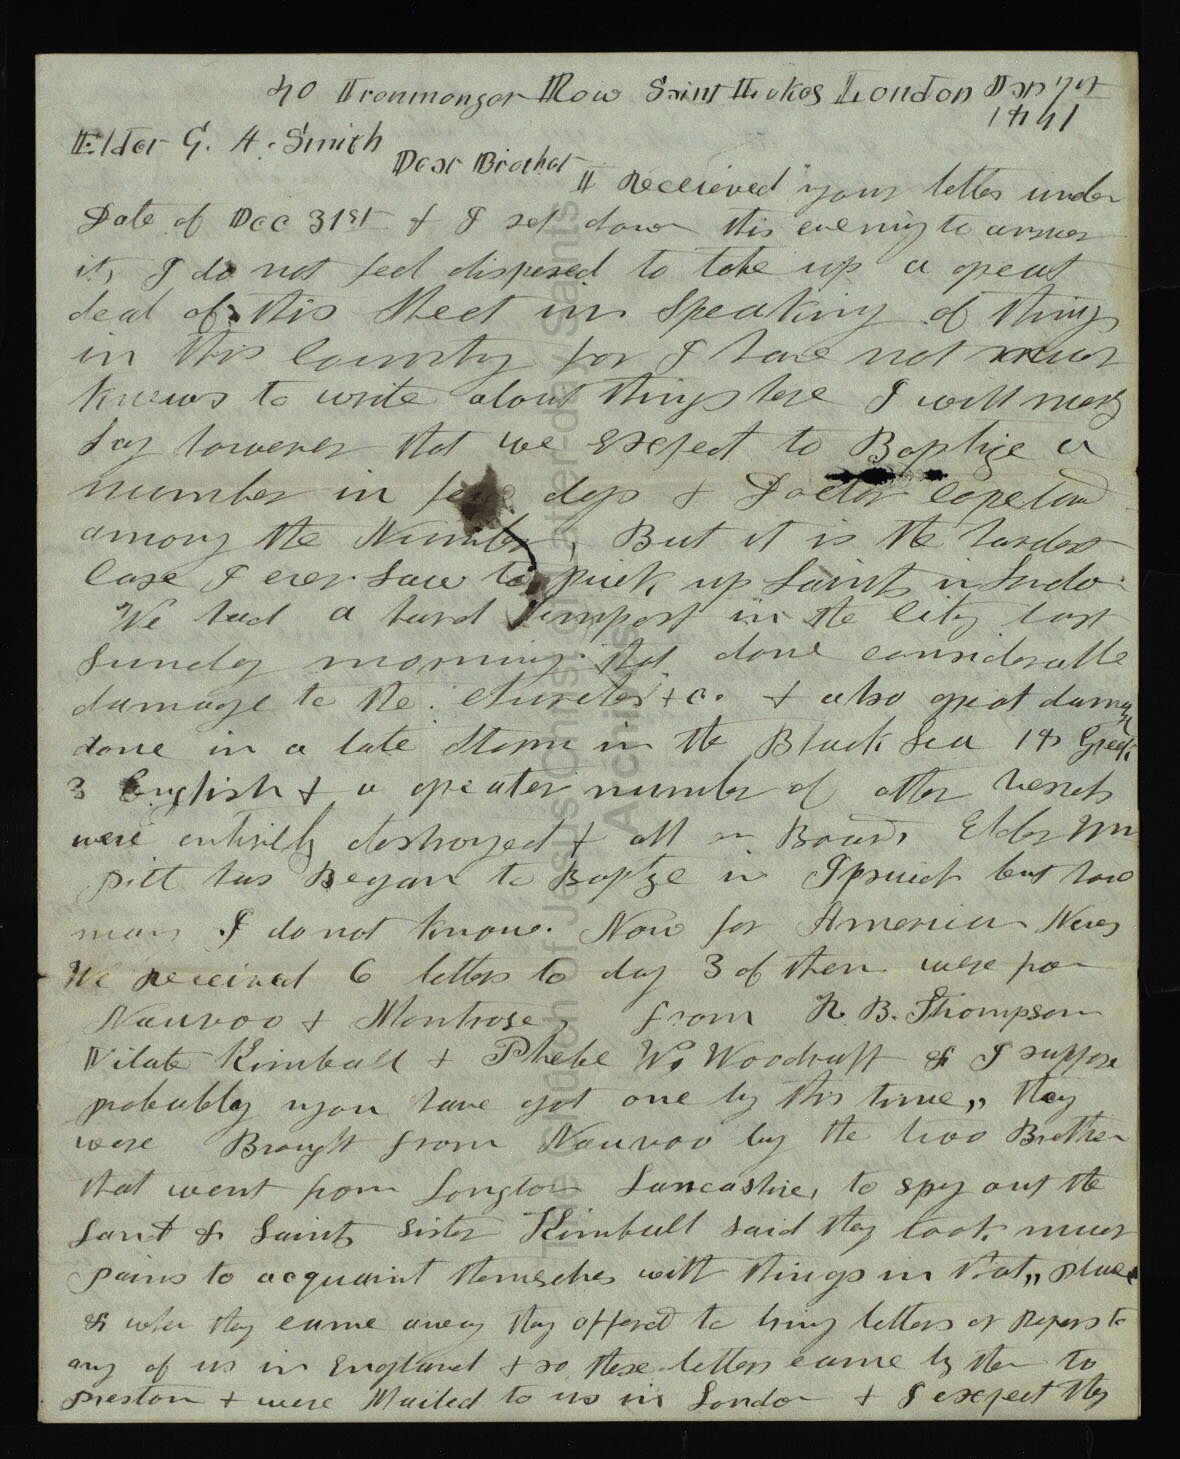 40 Ironmonger Row Saint Lukes London Jan 7th
1841
Elder G. A. Smith
Dear Brother I Received your letter under
Date of Dec 31st & I set down this evening to answer
it, I do not feel disposed to take up a great
deal of this Sheet in Speaking of things
in this Country for I have not much
Knews to write about things here I will merely
Say however that we expect to Baptize a
number in few days & Doctor Copeland
among the Number, But it is the hardest
Case I ever Saw to pick up Saints in London
We had a hard tempest in the City last
Sunday morning that done considerable
damage to the Churches &c. & also great damage
done in a late Storm in the Black Sea 14 Greek
3 English & a greater number of other vessels
were entirely destroyed & all on Board, Elder Wm
pitt has Began to Baptize in Ipswich but how
many I do not know. Now for American News
We Received 6 letters to day 3 of them were from
Nauvoo & Montrose, from R. B. Thompson
Vilate Kimball & Phebe W. Woodruff & I suppose
probably you have got one by this time,, they
were Brought from Nauvoo by the two Brethren
that went from Longton Lancashire, to spy out the
Land & Saints Sister Kimball said they took much
pains to acquaint themselves with things in that,, place
& when they came away they offered to bring letters or papers to
any of us in England & so these letters came by them to
Preston & were Mailed to us in London & I expect they